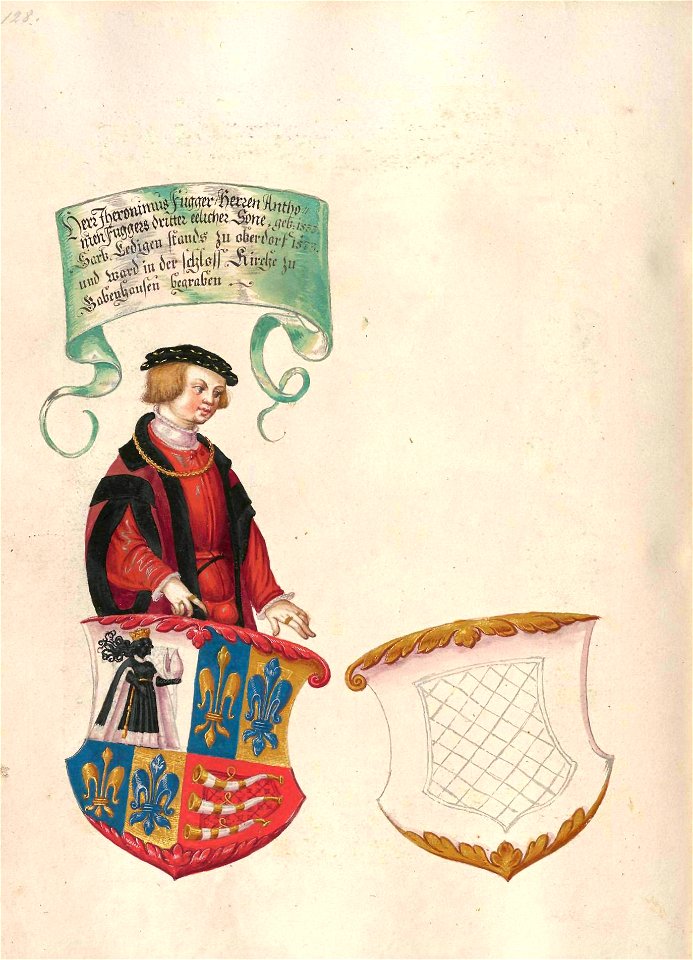 128.
Herr Iheronimus Fugger, Herren Antho-
nien Fuggers dritter eelicher Sone, geb. 1533.
Starb Ledigen stands zu oberdorf 1573.
und ward in der schloss Kirche zu
Babenhausen begraben